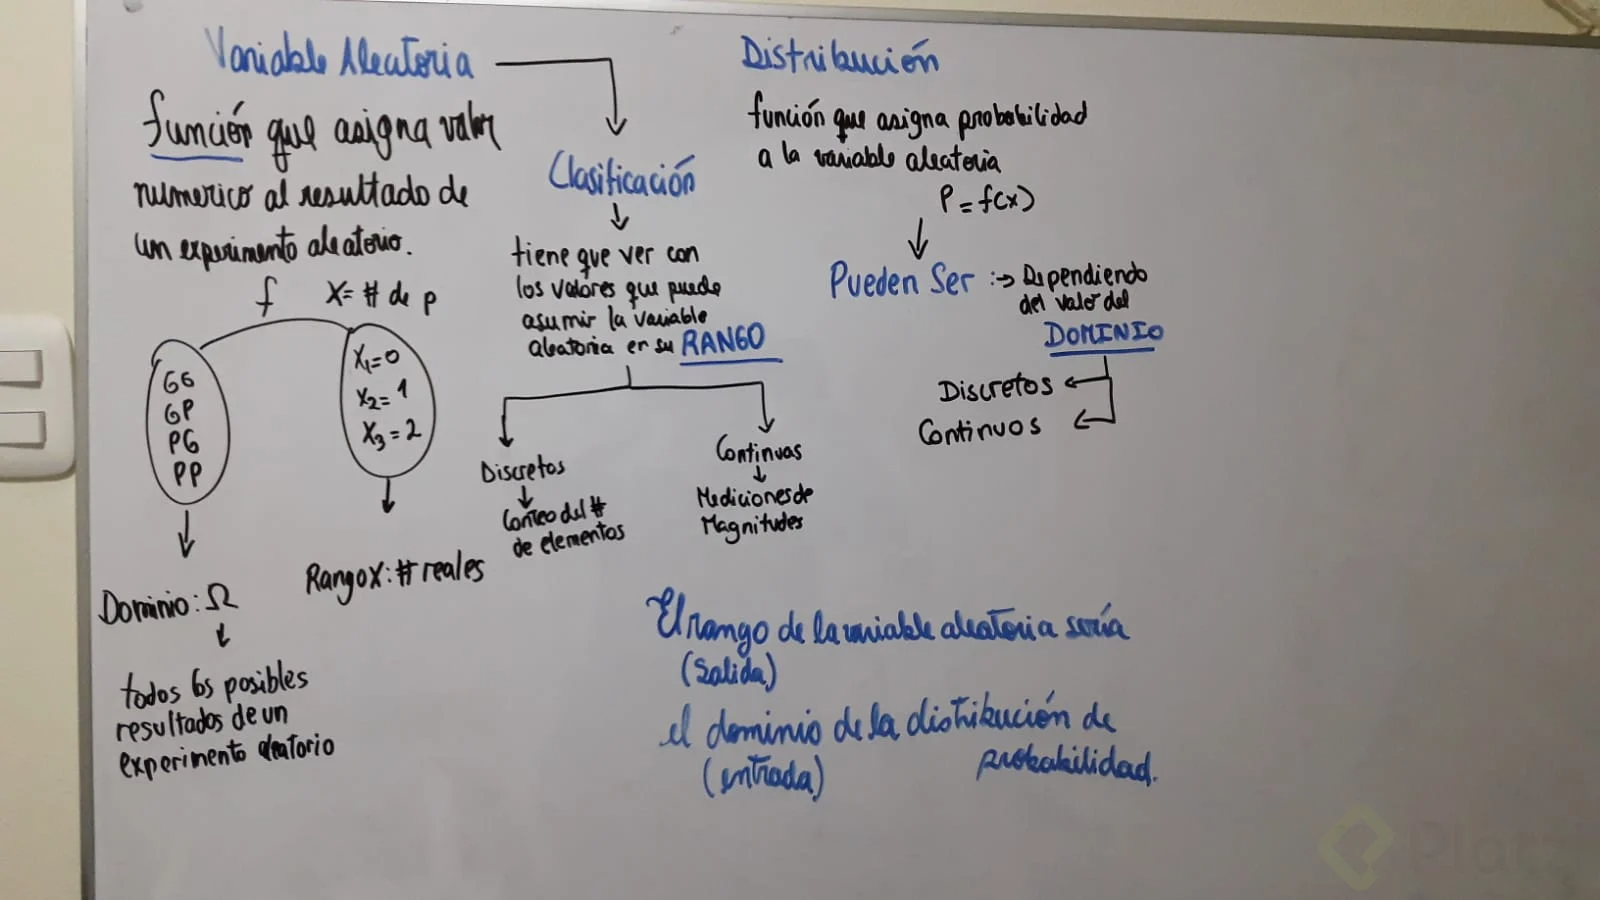 Variable Aleatoria
función que asigna valor
numerico al resultado de
un experimento aleatorio.
f X = # de p
GG
GP
PG
PP
X₁=0
X₂=1
X₃=2
Dominio: Ω
todos los posibles
resultados de un
experimento aleatorio
Rango X: # reales
Clasificación
tiene que ver con
los valores que puede
asumir la variable
aleatoria en su RANGO
Discretos
Conteo del #
de elementos
Continuas
Mediciones de
Magnitudes
Distribución
función que asigna probabilidad
a la variable aleatoria
P = f(x)
Pueden Ser :→ Dependiendo
del valor del
DOMINIO
Discretos
Continuos
El rango de la variable aleatoria sería
(Salida)
el dominio de la distribución de
(entrada) probabilidad.
Platzi